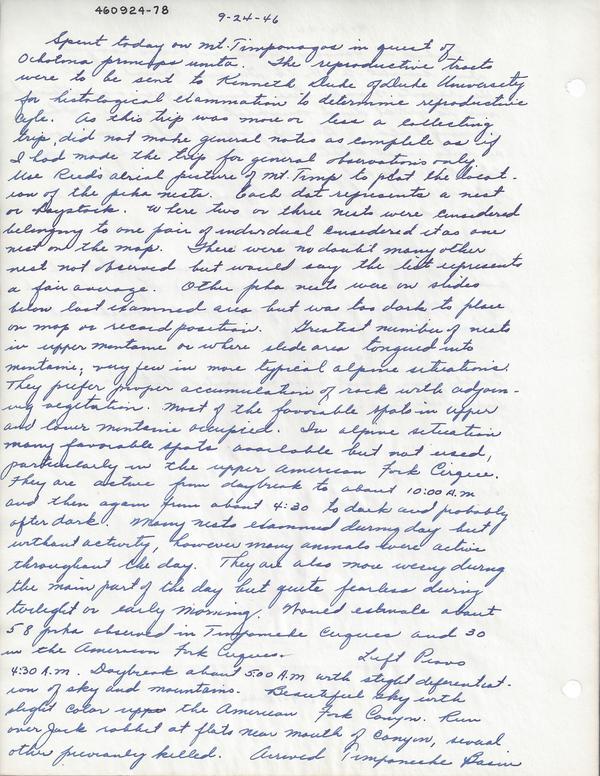 460924-78
9-24-46
Spent today on Mt. Timponagos in quest of
Ochotona princeps uinta. The reproductive tracts
were to be sent to Kenneth Duke of Duke University
for histological examination to determine reproductive
cycle. As this trip was more or less a collecting
trip, did not make general notes as complete as if
I had made the trip for general observations only.
Use Reed's aerial picture of Mt. Timp to plot the locat-
ion of the pika nests. Each dot represents a nest
or haystack. Where two or three nests were considered
belonging to one pair of individual considered it as one
nest on the map. There were no doubt many other
nest not observed but would say the list represents
a fair average. Other pika nests were on slides
below last examined area but was too dark to place
on map or record position. Greatest number of nests
in upper montane or where slide area tongued into
montane; very few in more typical alpine situations.
They prefer proper accumulation of rock with adjoin-
ing vegetation. Most of the favorable spots in upper
and lower montane occupied. In alpine situation
many favorable spots available but not used,
particularly in the upper American Fork Cirque.
They are active from daybreak to about 10:00 A.M
and then again from about 4:30 to dark and probably
after dark. Many nests examined during day but
without activity, however many animals were active
throughout the day. They are also more weery during
the main part of the day but quite fearless during
twilight or early morning. Would estimate about
58 pika observed in Timponeke Cirques and 30
in the American Fork Cirques. Left Provo
4:30 A.M. Daybreak about 5:00 A.M with slight diferentiat-
ion of sky and mountains. Beautiful sky with
slight color upper the American Fork Canyon. Run
over Jack rabbit at flats near mouth of Canyon, several
other previously killed. Arrived Timponeche Basin